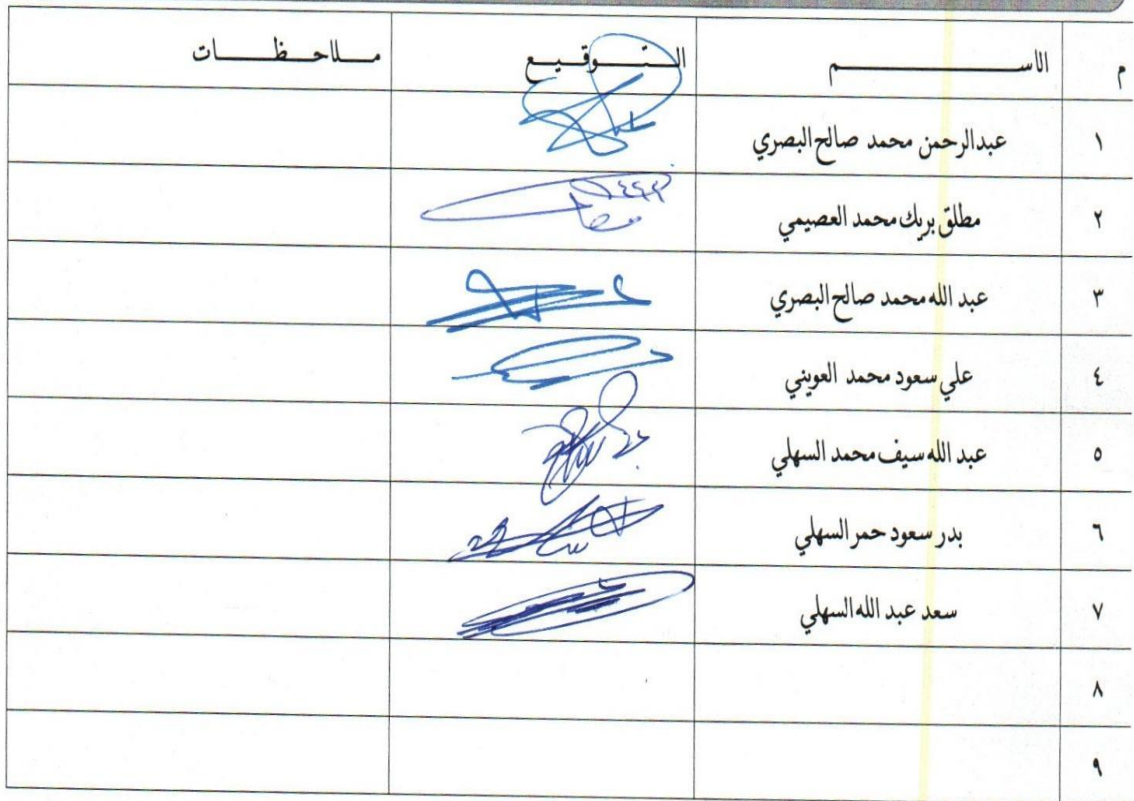 م الاســـــــم التـــوقـيــع مــلاحــظــــات
١ عبدالرحمن محمد صالح البصري
٢ مطلق بريك محمد العصيمي
٣ عبد الله محمد صالح البصري
٤ علي سعود محمد العويني
٥ عبد الله سيف محمد السهلي
٦ بدر سعود حمر السهلي
٧ سعد عبد الله السهلي
٨
٩